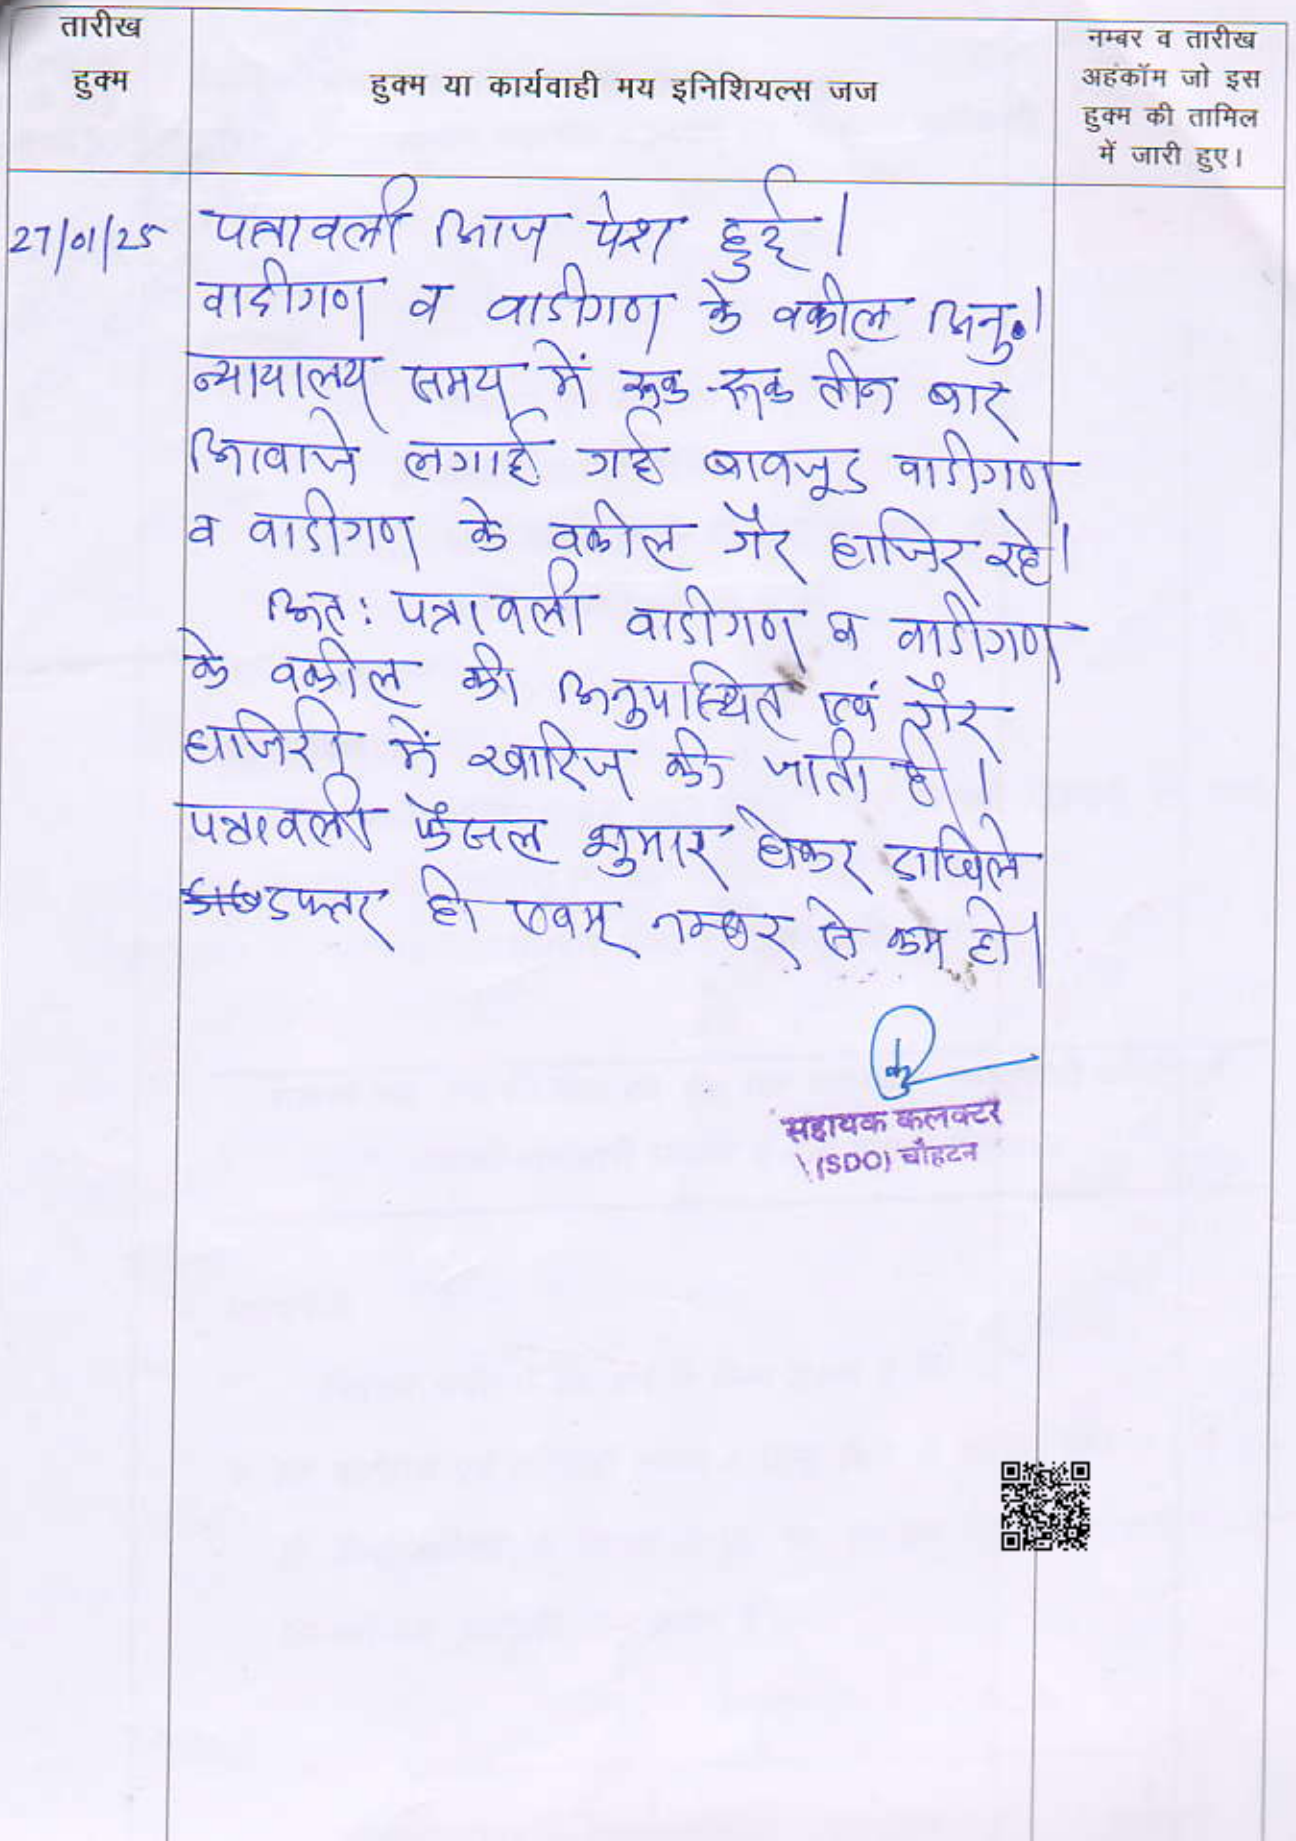 तारीख
हुक्म
हुक्म या कार्यवाही मय इनिशियल्स जज
नम्बर व तारीख
अहकॉम जो इस
हुक्म की तामिल
में जारी हुए।
27/01/25 पत्रावली आज पेश हुई।
वादीगण व वादीगण के वकील अनु.।
न्यायालय समय में रूक-रूक तीन बार
आवाजे लगाई गई बावजूद वादीगण
व वादीगण के वकील गैर हाजिर रहे।
अत: पत्रावली वादीगण व वादीगण
के वकील की अनुपस्थित एवं गैर
हाजिरी में खारिज की जाती है।
पत्रावली फैसल शुमार होकर दाखिले
दफ्तर हो एवम् नम्बर से कम हो।
सहायक कलक्टर
(SDO) चौहटन